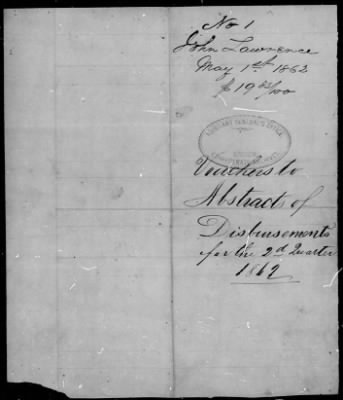 No 1
John Lawrence
May 1st 1862
$19 62/100
Vouchers to
Abstracts of
Disbursements
for the 2d Quarter
1862